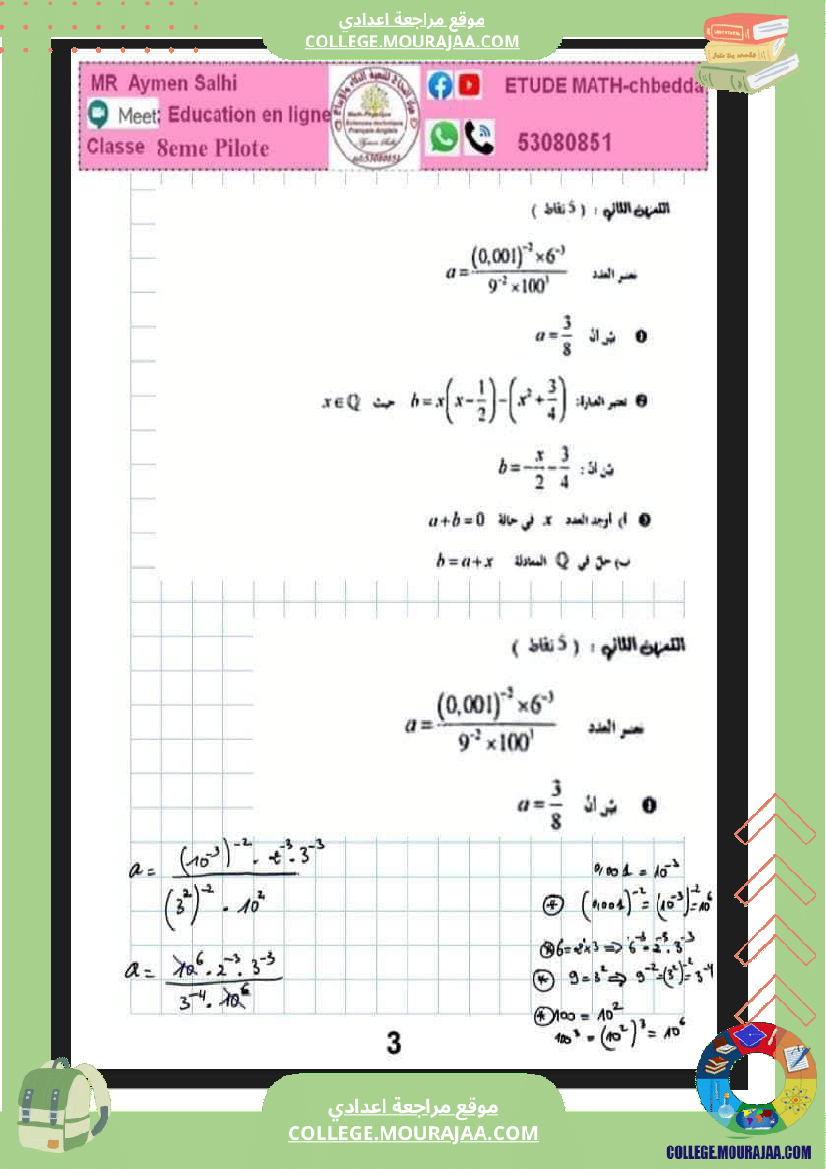 موقع مراجعة اعدادي
COLLEGE.MOURAJAA.COM
MR Aymen Salhi
Meet: Education en ligne
Classe 8eme Pilote
ETUDE MATH-chbedda
53080851
التمرين الثاني : ( 5 نقاط )
نعتبر العدد a = \frac{(0,001)^{-2} × 6^{-3}}{9^{-2} × 100^3}
❶ بيّن أنّ a = \frac{3}{8}
❷ نعتبر العبارة: b = x(x - \frac{1}{2}) - (x^2 + \frac{3}{4}) حيث x ∈ Q
بيّن أنّ : b = -\frac{x}{2} - \frac{3}{4}
❸ أ) أوجد العدد x في حالة a + b = 0
ب) حلّ في Q المعادلة b = a + x
التمرين الثاني : ( 5 نقاط )
نعتبر العدد a = \frac{(0,001)^{-2} × 6^{-3}}{9^{-2} × 100^3}
❶ بيّن أنّ a = \frac{3}{8}
a = \frac{(10^{-3})^{-2} · 2^{-3} · 3^{-3}}{(3^2)^{-2} · 10^2}
a = \frac{10^6 · 2^{-3} · 3^{-3}}{3^{-4} · 10^6}
0,001 = 10^{-3}
(0,001)^{-2} = (10^{-3})^{-2} = 10^6
6 = 2 × 3 ⇒ 6^{-3} = 2^{-3} · 3^{-3}
9 = 3^2 ⇒ 9^{-2} = (3^2)^{-2} = 3^{-4}
100 = 10^2
100^3 = (10^2)^3 = 10^6
3
موقع مراجعة اعدادي
COLLEGE.MOURAJAA.COM
COLLEGE.MOURAJAA.COM